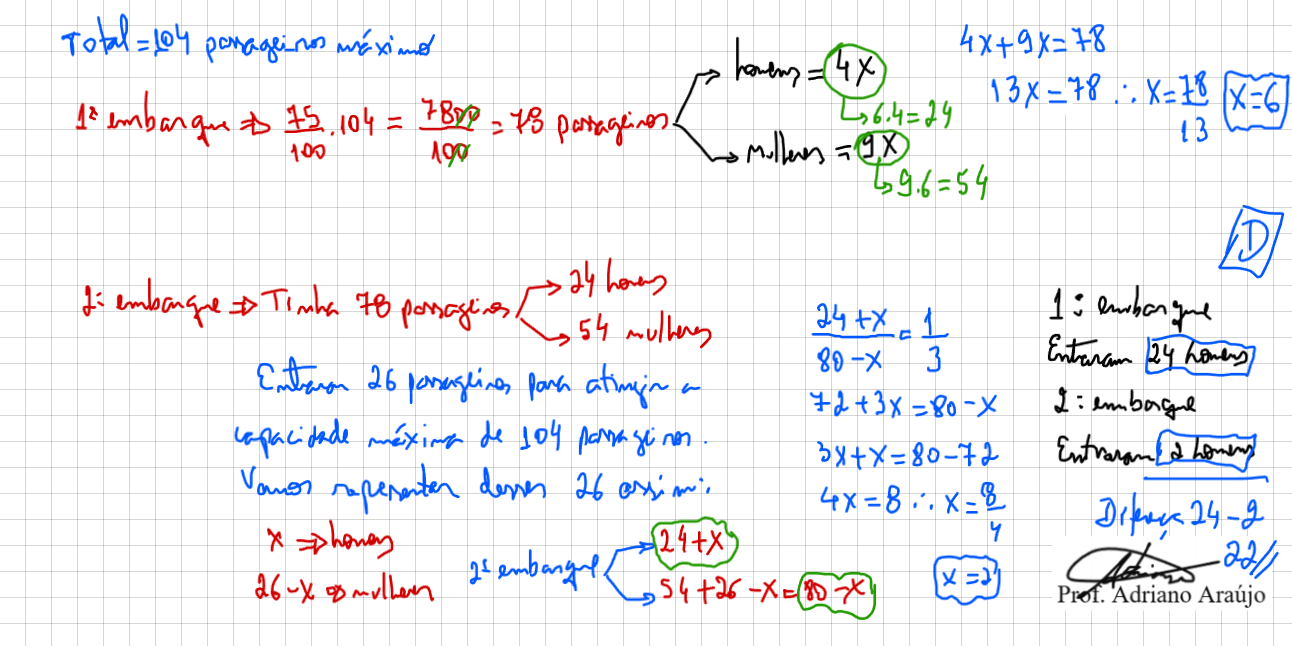 Total = 104 passageiros máximo
1º embarque ⇒ 75/100 . 104 = 7800/100 = 78 passageiros
homens = 4x
↳ 6.4 = 24
mulheres = 9x
↳ 9.6 = 54
4x + 9x = 78
13x = 78 ∴ x = 78/13 x = 6
D
2º embarque ⇒ Tinha 78 passageiros
24 homens
54 mulheres
Entraram 26 passageiros para atingir a
capacidade máxima de 104 passageiros.
Vamos representar desses 26 assim:
x ⇒ homens
26 - x ⇒ mulheres
2º embarque
24 + x
54 + 26 - x = 80 - x
24 + x / 80 - x = 1/3
72 + 3x = 80 - x
3x + x = 80 - 72
4x = 8 ∴ x = 8/4
x = 2
1º embarque
Entraram 24 homens
2º embarque
Entraram 2 homens
Diferença 24 - 2
22//
Prof. Adriano Araújo